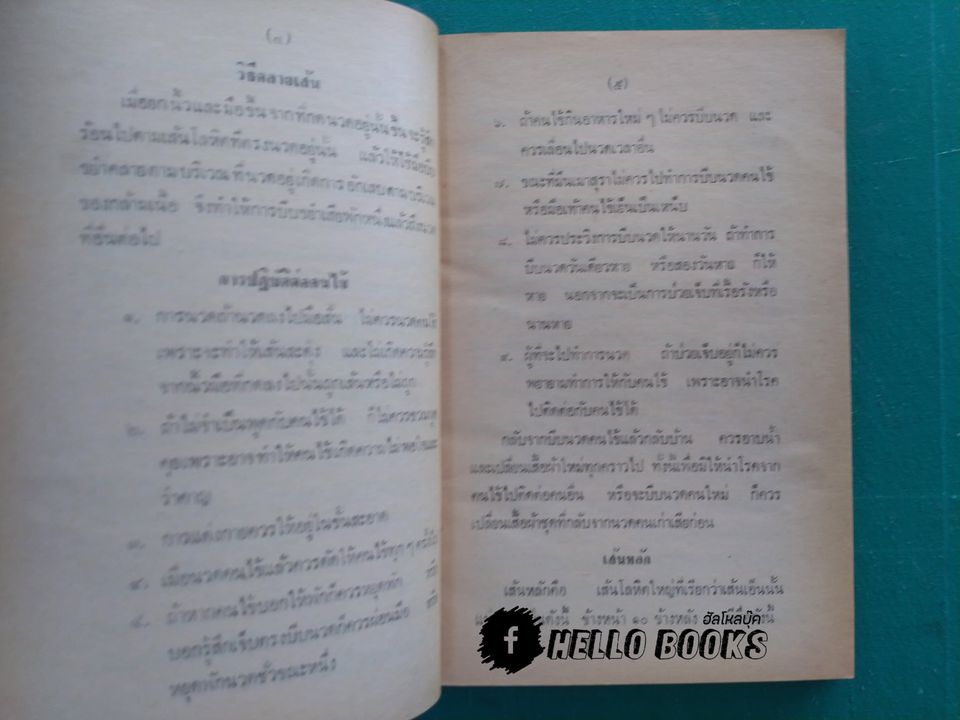 (๘)
วิธีคลายเส้น
เมื่อยกนิ้วและมือขึ้นจากที่กดนวดอยู่นั้น
ร้อนไปตามเส้นโลหิตที่ตรงนวดอยู่นั้น แล้วให้ใช้มือบีบ
ขยำคลายตามบริเวณที่นวดอยู่เกิดการอักเสบตามบริเวณ
ของกล้ามเนื้อ จึงทำให้การบีบขยำเสียพักหนึ่งแล้วถึงนวด
ที่อื่นต่อไป
การปฏิบัติต่อคนไข้
๑. การนวดถ้านวดลงไปมือสั่น ไม่ควรนวดคนไข้
เพราะจะทำให้เส้นสะดุ้ง และไม่เกิดความรู้สึก
จากนิ้วมือที่กดลงไปนั้นถูกเส้นหรือไม่ถูก
๒. ถ้าไม่จำเป็นพูดกับคนไข้ได้ ก็ไม่ควรชวนพูด
คุยเพราะอาจทำให้คนไข้เกิดความไม่พอใจและ
รำคาญ
๓. การแต่งกายควรให้อยู่ในขั้นสะอาด
๔. เมื่อนวดคนไข้แล้วควรดัดให้คนไข้ทุก ๆ ครั้งไป
๕. ถ้าหากคนไข้บอกให้พักก็ควรหยุดพัก
บอกรู้สึกเจ็บตรงบีบนวดก็ควรผ่อนมือ
หยุดพักนวดชั่วขณะหนึ่ง
(๙)
๖. ถ้าคนไข้กินอาหารใหม่ ๆ ไม่ควรบีบนวด และ
ควรเลื่อนไปนวดเวลาอื่น
๗. ขณะที่มึนเมาสุราไม่ควรไปทำการบีบนวดคนไข้
หรือมือเท้าคนไข้เย็นเป็นเหน็บ
๘. ไม่ควรประวิงการบีบนวดให้นานวัน ถ้าทำการ
บีบนวดวันเดียวหาย หรือสองวันหาย ก็ให้
หาย นอกจากจะเป็นการป่วยเจ็บที่เรื้อรังหรือ
นานหาย
๙. ผู้ที่จะไปทำการนวด ถ้าป่วยเจ็บอยู่ก็ไม่ควร
พยายามทำการให้กับคนไข้ เพราะอาจนำโรค
ไปติดต่อกับคนไข้ได้
กลับจากบีบนวดคนไข้แล้วกลับบ้าน ควรอาบน้ำ
และเปลี่ยนเสื้อผ้าใหม่ทุกคราวไป ทั้งนี้เพื่อมิให้นำโรคจาก
คนไข้ไปติดต่อคนอื่น หรือจะบีบนวดคนใหม่ ก็ควร
เปลี่ยนเสื้อผ้าชุดที่กลับจากนวดคนเก่าเสียก่อน
เส้นหลัก
เส้นหลักคือ เส้นโลหิตใหญ่ที่เรียกว่าเส้นเอ็นนั้น
ข้างหน้า ๑๐ ข้างหลัง
ฮัลโหลบุ๊ค
f HELLO BOOKS